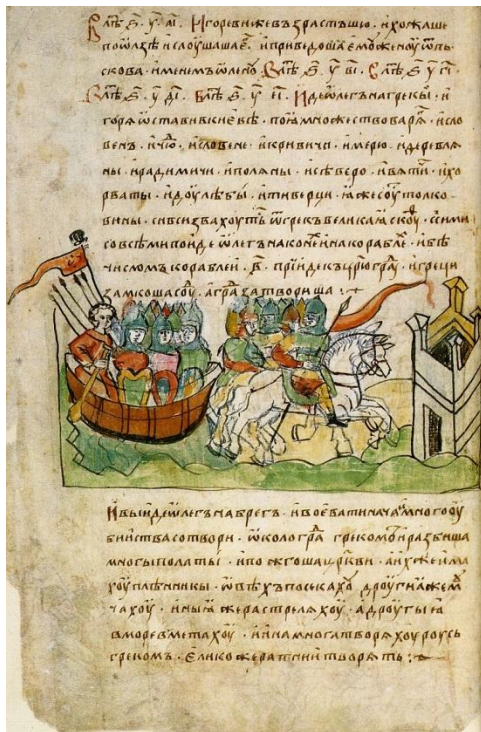 В лѣт҃ ҂ѕ҃ у҃ аі҃ · Игореви же възрастъшю · и хожаше
по ѡлзѣ и слоушаше е҃ · и приведоша емоу женоу ѿ пь
скова · именемъ ѡлено · В лѣт҃ ҂ѕ҃ у҃ ві · В лѣт҃ ҂ѕ҃ у҃ гі
В лѣт҃ ҂ѕ҃ у҃ ді · В лѣт҃ ҂ѕ҃ у҃ еі · Иде ѡлегъ на грекы · и
горѧ ѡстави в киевѣ · поѧ множество варѧ҃ · и сло
венъ · и чю҃ · и словене · и кривичи · и мерю · и деревлѧ
ны · и радимичи · и полѧны · и сѣверо · и вѧти҃ · и хо
рваты · и доулѣбы · и тиверци · ꙗже соу҃ толко
вины · си вси звахоуть ѿ грекъ великаѧ скоуѳ҃ · с сими
со всѣми поиде ѡлегъ на коне҃ и на корабле҃ · и бѣ
числомъ кораблеи · в҃ · прїиде къ црю҃ гра҃ · и греци
замкоша соу҃ · а гра҃ затвориша :·
И выиде ѡлегъ на брегъ · и воевати нача · и много оу
бииства сотвори · ѡколо гра҃ грекомъ · и разбиша
многы полаты · и пожгоша црк҃ви · а их же има
хоу плѣнникы · ѡвѣхъ посекахоу дроугиа же мѫ
чахоу · иныа же растрелѧхоу · а дроугыꙗ
в море вметахоу · и ина многа творѧхоу роусь
грекомъ · елико же ратнии творѧть :·